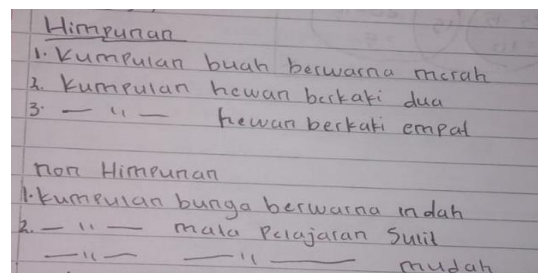 Himpunan
1. Kumpulan buah berwarna merah
2. Kumpulan hewan berkaki dua
3. — " — hewan berkaki empat
non Himpunan
1. Kumpulan bunga berwarna indah
2. — " — mata Pelajaran Sulit
— " — — " — mudah